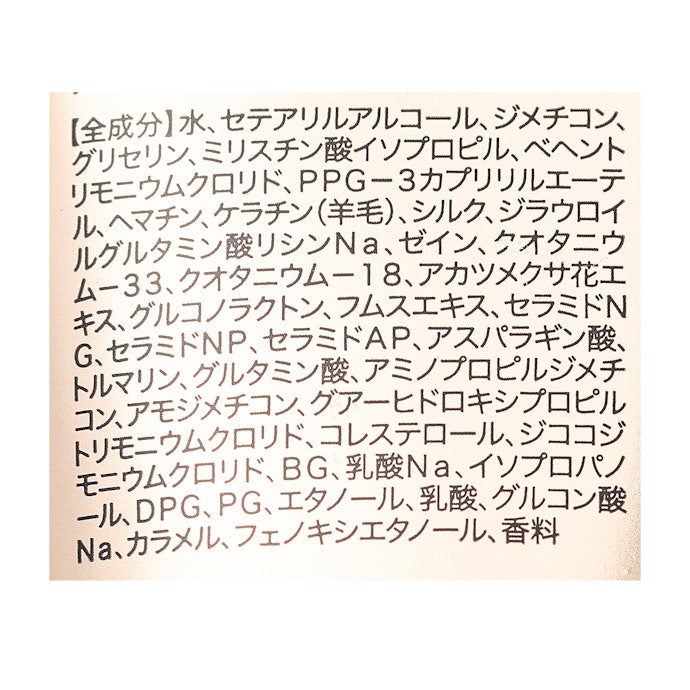 【全成分】水、セテアリルアルコール、ジメチコン、
グリセリン、ミリスチン酸イソプロピル、ベヘント
リモニウムクロリド、PPG－3カプリリルエーテ
ル、ヘマチン、ケラチン（羊毛）、シルク、ジラウロイ
ルグルタミン酸リシンNa、ゼイン、クオタニウ
ム－33、クオタニウム－18、アカツメクサ花エ
キス、グルコノラクトン、フムスエキス、セラミドN
G、セラミドNP、セラミドAP、アスパラギン酸、
トルマリン、グルタミン酸、アミノプロピルジメチ
コン、アモジメチコン、グアーヒドロキシプロピル
トリモニウムクロリド、コレステロール、ジココジ
モニウムクロリド、BG、乳酸Na、イソプロパノ
ール、DPG、PG、エタノール、乳酸、グルコン酸
Na、カラメル、フェノキシエタノール、香料